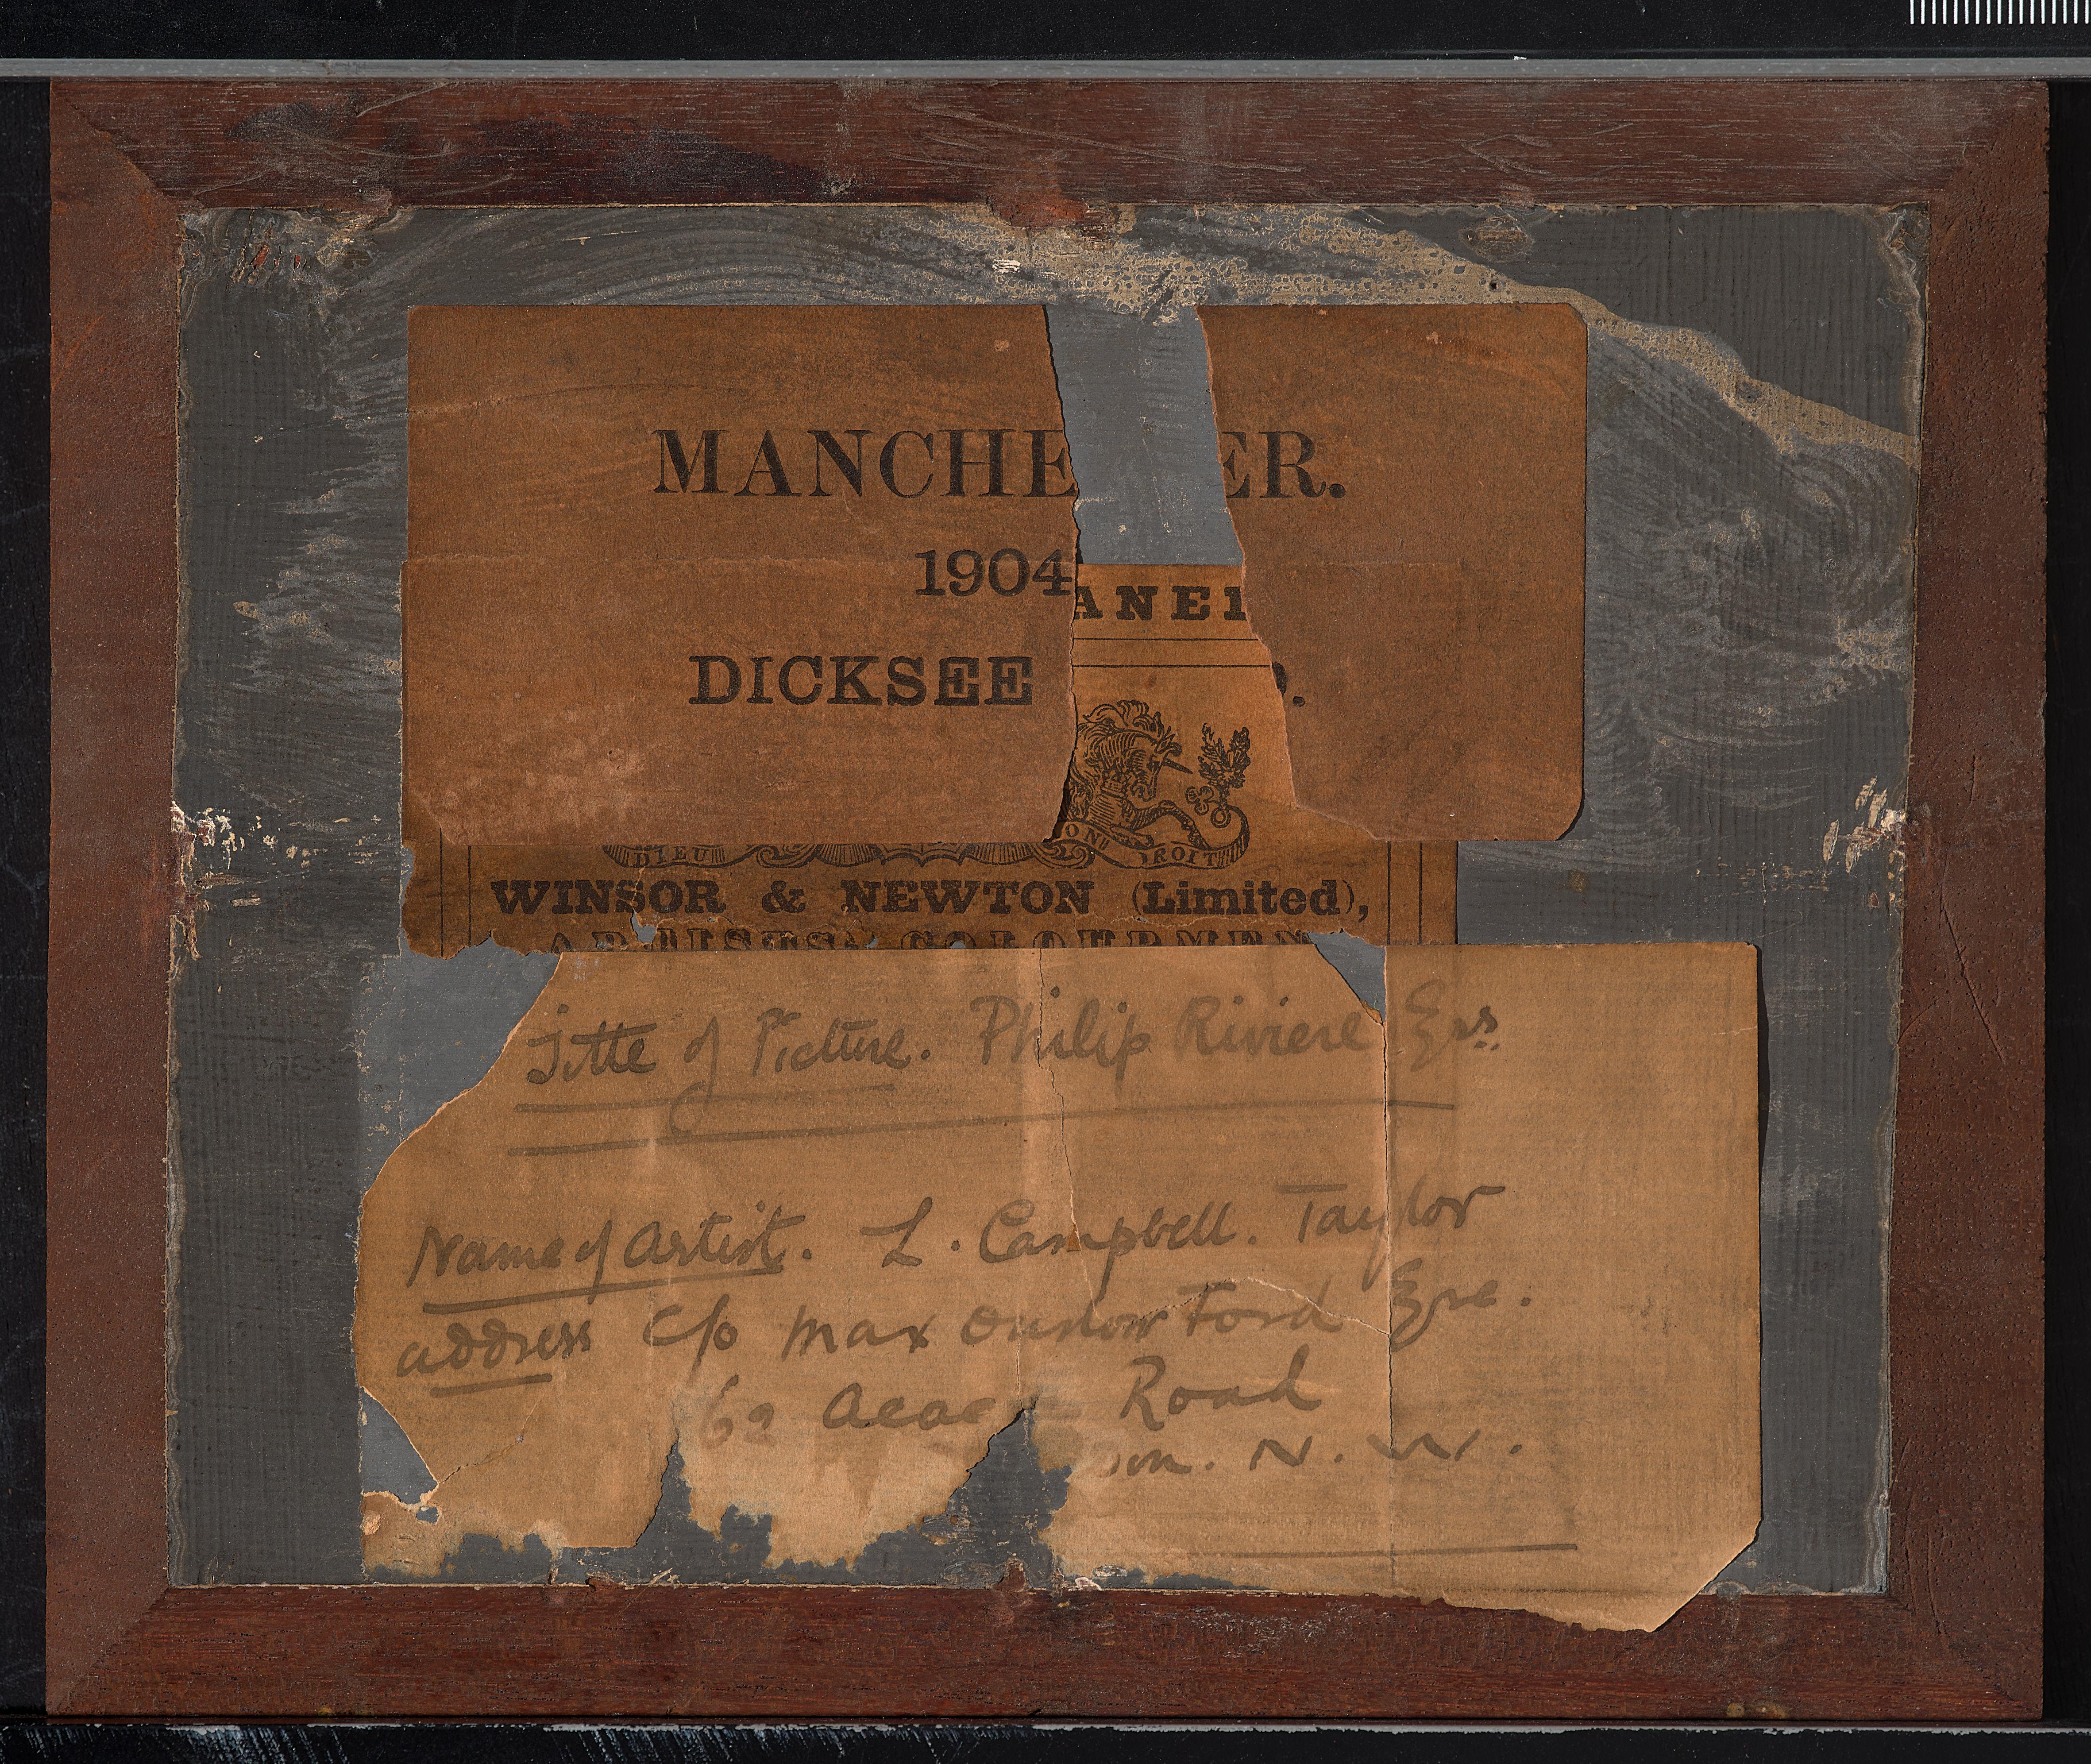 MANCHE ER.
1904
ANEI
DICKSEE
DIEU ON DROIT
WINSOR & NEWTON (Limited),
ARTISTS' COLOURMEN
Title of Picture. Philip Riviere Esq.
Name of Artist. L. Campbell. Taylor
address c/o Max Onslow Ford Esq.
62 Acac Road
on. N. W.